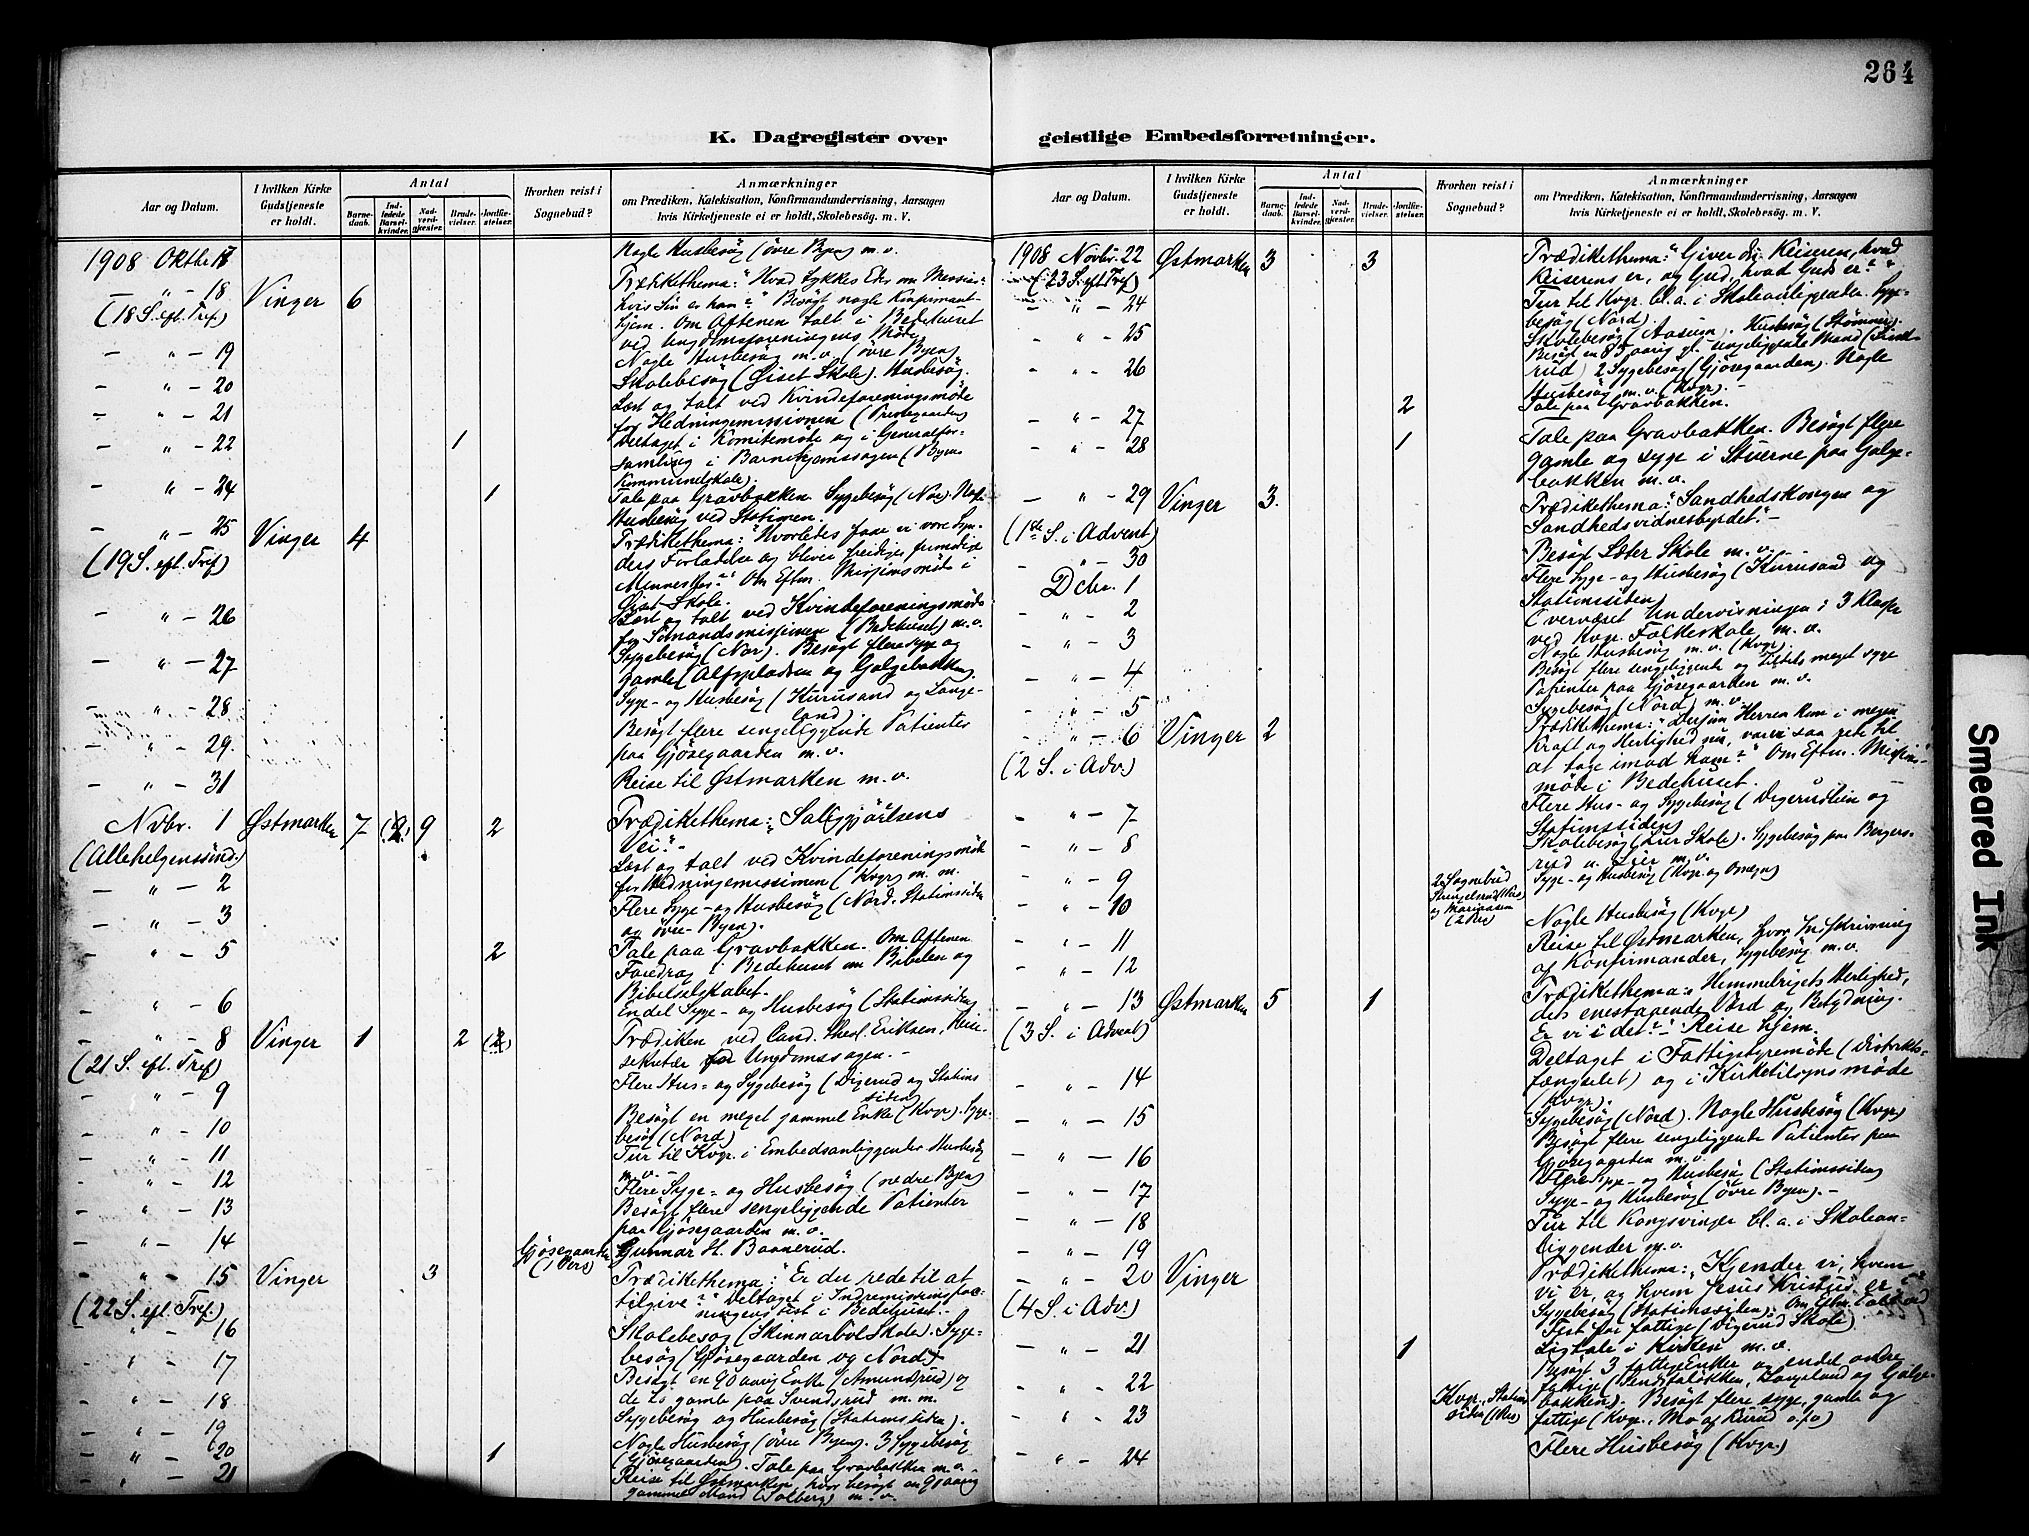 264
K. Dagregister over geistlige Embedsforretninger.
Aar og Datum.
I hvilken Kirke Gudstjeneste er holdt.
Antal
Barnedaab.
Indledede Barselkvinder.
Nadverdgjester.
Brudevielser.
Jordfæstelser.
Hvorhen reist i Sognebud?
Anmærkninger
om Prædiken, Katekisation, Konfirmandundervisning, Aarsagen
hvis Kirketjeneste ei er holdt, Skolebesøg. m. V.
1908 Oktbr 17
Nogle Husbesøg (øvre Byen) m. v.
— " — 18 Vinger 6
(18 S. eft. Tref.)
Prædikethema: "Hvad tykkes Eder om Messias:
hvis Søn er han?" Besøgt nogle Konfirmant-
hjem. Om Aftenen talt i Bedehuset
ved Ungdomsforeningens Møde
— " — 19
Nogle Husbesøg m. v. (øvre Byen)
— " — 20
Skolebesøg (Øiset Skole). Husbesøg.
— " — 21
Læst og talt ved Kvindeforeningsmøde
for Hedningemissionen (Prestegaarden)
— " — 22 1
Deltaget i Komitemøde og i Generalfor-
samling i Barnehjemssagen (Byens
Kommuneskole).
— " — 24 1
Tale paa Gravbakken. Sygebesøg (Nor). Nogle
Husbesøg ved Stationen.
— " — 25 Vinger 4
(19 S. eft. Tref.)
Prædikethema: "Hvorledes faae vi vore Syn-
ders Forladelse og bliver freidige, frimodige
Mennesker?" Om Eftm. Missionsmøde i
Øiset Skole.
— " — 26
Læst og talt ved Kvindeforeningsmøde
for Sømandsmissionen (Bedehuset) m. v.
— " — 27
Sygebesøg (Nor). Besøgt flere syge og
gamle (Alfspladsen og Galgebakken)
— " — 28
Syge- og Husbesøg (Kurusand og Lange-
land)
— " — 29.
Besøgt flere sengeliggende Patienter
paa Gjøsegaarden m. v.
— " — 31
Reise til Østmarken m. v.
Novbr. 1 Østmarken 7 (2) 9 2
(Allehelgenssønd.)
Prædikethema: "Saliggjørelsens
Vei"
— " — 2
Læst og talt ved Kvindeforeningsmøde
for Hedningemissionen (Kvgr) m. m.
— " — 3
Flere Syge- og Husbesøg (Nord, Stationssiden
og øvre Byen).
— " — 5 2
Tale paa Gravbakken. Om Aftenen
Foredrag i Bedehuset om Bibelen og
Bibelselskabet.
— " — 6
Endel Syge- og Husbesøg (Stationssiden)
— " — 8 Vinger 1 2 (2)
(21 S. eft. Tref.)
Prædiken ved Cand. theol. Eriksen, Reise-
sekretær for Ungdomssagen.
— " — 9
Flere Hus- og Sygebesøg (Digerud og Stations
siden)
— " — 10
Besøgt en meget gammel Enke (Kvgr). Syge-
besøg (Nord)
— " — 11
Tur til Kvgr. i Embedsanliggender Husbesøg
m. v.
— " — 12
Flere Syge- og Husbesøg (nedre Byen)
— " — 13
Besøgt flere sengeliggende Patienter
paa Gjøsegaarden m. v.
— " — 14
Gjøsegaarden (1 Pers)
Gunnar H. Baanerud.
— " — 15 Vinger 3
(22 S. eft. Tref.)
Prædikethema: "Er du rede til at
tilgive?" Deltaget i Indremissionsfor-
ningens Fest i Bedehuset.
— " — 16
Skolebesøg (Skinnarbøl Skole). Syge-
— " — 17
besøg (Gjøsegaarden og Nord)
Besøgt en 90 aarig Enke (Amundsrud) og
— " — 18
de to gamle paa Svendsrud m. m.
— " — 19
Sygebesøg og Husbesøg (Stationssiden).
— " — 20 1
Nogle Husbesøg (øvre Byen). 3 Sygebesøg
(Gjøsegaarden). Tale paa Gravbakken m. v.
— " — 21
Reise til Østmarken, hvor besøgt en 90 aarig
gammel Mand (Solberg) m. v.
Aar og Datum.
I hvilken Kirke Gudstjeneste er holdt.
Antal
Barnedaab.
Indledede Barselkvinder.
Nadverdgjester.
Brudevielser.
Jordfæstelser.
Hvorhen reist i Sognebud?
Anmærkninger
om Prædiken, Katekisation, Konfirmandundervisning, Aarsagen
hvis Kirketjeneste ei er holdt, Skolebesøg. m. V.
1908 Novbr. 22 Østmarken 3 3
(23 S. eft Tref)
Prædikethema: "Giver du Keiseren, hvad
Keiserens er, og Gud, hvad Guds er?"
— " — 24
Tur til Kvgr. bl. a. i Skoleanliggender. Syge-
besøg (Nord).
— " — 25
Skolebesøg (Aasum). Husbesøg (Strømner).
Besøgt en 85 aarig gl. sengeliggende Mand
— " — 26
2 Sygebesøg (Gjøsegaarden). Nogle
Husbesøg m. v. (Kvgr).
— " — 27 2
Tale paa Gravbakken.
— " — 28 1
Tale paa Gravbakken. Besøgt flere
gamle og syge i Stuerne paa Galge-
bakken m. v.
— " — 29 Vinger 3.
(1ste S. i Advent)
Prædikethema: "Sandhedskongen og
Sandhedsvidnesbyrdet."
— " — 30
Besøgt Læter Skole m. v.
Dcbr. 1
Flere Syge- og Husbesøg (Kurusand og
Stationssiden)
— " — 2
Overværet Undervisningen i 3 Klasser
ved Kvgr. Folkeskole m. v.
— " — 3
Nogle Husbesøg m. v. (Kvgr).
— " — 4
Besøgt flere sengeliggende og tildels meget syge
Patienter paa Gjøsegaarden m. v.
— " — 5
Sygebesøg (Nord) m. v.
— " — 6 Vinger 2
(2 S. i Adv.)
Prædikethema: "Dersom Herren kom i megen
Kraft og Herlighed nu, vare vi saa rede til
at tage imod ham?" Om Eftm. Missions-
møde i Bedehuset.
— " — 7
Flere Hus- og Sygebesøg (Digerudlien og
Stationssiden)
— " — 8
Skolebesøg (Lier Skole). Sygebesøg paa Bergers-
rud u. Lier m. v.
— " — 9
2 Sognebud
og Mariaasen
Syge- og Husbesøg (Kvgr. og Omegn)
— " — 10
Nogle Husbesøg (Kvgr)
— " — 11
Reise til Østmarken, hvor Indskrivning
— " — 12
af Konfirmander, Sygebesøg m. v.
— " — 13 Østmarken 5 1
(3 S. i Advent)
Prædikethema: "Himmelrigets Herlighed,
dets enestaaende Værd og Betydning.
Er vi i det?" Reise hjem.
— " — 14
Deltaget i Fattigstyremøde (Distrikts-
fængselet) og i Kirketilsynsmøde
(Kvgr).
— " — 15
Sygebesøg (Nord). Nogle Husbesøg (Kvgr)
— " — 16
Besøgt flere sengeliggende Patienter paa
Gjøsegaarden m. v.
— " — 17
Flere Syge- og Husbesøg (Stationssiden)
— " — 18
Syge- og Husbesøg (øvre Byen).
— " — 19
Tur til Kongsvinger bl. a. i Skolean-
liggender m. v.
— " — 20 Vinger
(4 S. i Adv.)
Prædikethema: "Kjender vi, hvem
vi er, og hvem Jesus Kristus er?"
Sygebesøg (Stationssiden). Om Eftm.
Fest for fattige (Digerud Skole).
— " — 21 1
Ligtale i Kirken m. v.
— " — 22
Besøgt 3 fattige Enker og endel andre
fattige (Langeland og Galge-
— " — 23
Kvgr. Stationssiden
bakken). Besøgt flere syge, gamle og
fattige (Kvgr.
— " — 24
Flere Husbesøg (Kvgr)
Smeared Ink